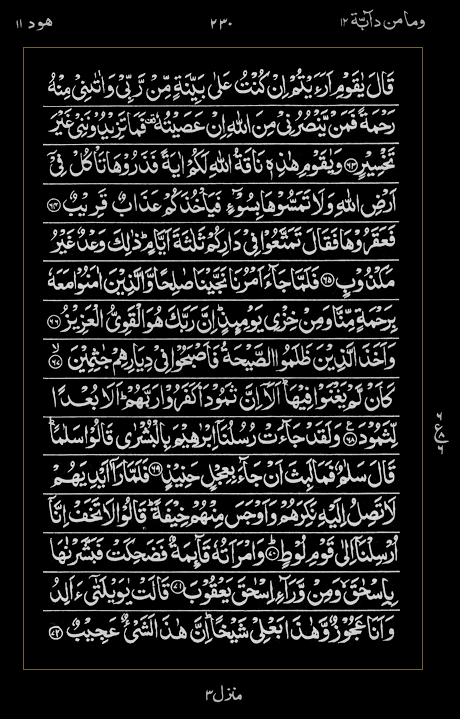 وما من دآبة ١٢ ٢٣٠ هود ١١
قَالَ يٰقَوْمِ اَرَءَيْتُمْ اِنْ كُنْتُ عَلٰى بَيِّنَةٍ مِّنْ رَّبِّىْ وَاٰتٰىنِىْ مِنْهُ
رَحْمَةً فَمَنْ يَّنْصُرُنِىْ مِنَ اللهِ اِنْ عَصَيْتُهٗ فَمَا تَزِيْدُوْنَنِىْ غَيْرَ
تَخْسِيْرٍ ﴿٦٣﴾ وَيٰقَوْمِ هٰذِهٖ نَاقَةُ اللهِ لَكُمْ اٰيَةً فَذَرُوْهَا تَأْكُلْ فِىْۤ
اَرْضِ اللهِ وَلَا تَمَسُّوْهَا بِسُوْٓءٍ فَيَأْخُذَكُمْ عَذَابٌ قَرِيْبٌ ﴿٦٤﴾
فَعَقَرُوْهَا فَقَالَ تَمَتَّعُوْا فِىْ دَارِكُمْ ثَلٰثَةَ اَيَّامٍ ؕ ذٰلِكَ وَعْدٌ غَيْرُ
مَكْذُوْبٍ ﴿٦٥﴾ فَلَمَّا جَآءَ اَمْرُنَا نَجَّيْنَا صٰلِحًا وَّالَّذِيْنَ اٰمَنُوْا مَعَهٗ
بِرَحْمَةٍ مِّنَّا وَمِنْ خِزْىِ يَوْمِئِذٍ ؕ اِنَّ رَبَّكَ هُوَ الْقَوِىُّ الْعَزِيْزُ ﴿٦٦﴾
وَاَخَذَ الَّذِيْنَ ظَلَمُوا الصَّيْحَةُ فَاَصْبَحُوْا فِىْ دِيَارِهِمْ جٰثِمِيْنَ ﴿٦٧﴾ ۙ
كَاَنْ لَّمْ يَغْنَوْا فِيْهَا ؕ اَلَاۤ اِنَّ ثَمُوْدَا۟ كَفَرُوْا رَبَّهُمْ ؕ اَلَا بُعْدًا
لِّثَمُوْدَ ﴿٦٨﴾ وَلَقَدْ جَآءَتْ رُسُلُنَاۤ اِبْرٰهِيْمَ بِالْبُشْرٰى قَالُوْا سَلٰمًا ؕ
قَالَ سَلٰمٌ فَمَا لَبِثَ اَنْ جَآءَ بِعِجْلٍ حَنِيْذٍ ﴿٦٩﴾ فَلَمَّا رَاٰۤ اَيْدِيَهُمْ
لَا تَصِلُ اِلَيْهِ نَكِرَهُمْ وَاَوْجَسَ مِنْهُمْ خِيْفَةً ؕ قَالُوْا لَا تَخَفْ اِنَّاۤ
اُرْسِلْنَاۤ اِلٰى قَوْمِ لُوْطٍ ؕ ﴿٧٠﴾ وَامْرَاَتُهٗ قَآئِمَةٌ فَضَحِكَتْ فَبَشَّرْنٰهَا
بِاِسْحٰقَ ۙ وَمِنْ وَّرَآءِ اِسْحٰقَ يَعْقُوْبَ ﴿٧١﴾ قَالَتْ يٰوَيْلَتٰٓى ءَاَلِدُ
وَاَنَا عَجُوْزٌ وَّهٰذَا بَعْلِىْ شَيْخًا ؕ اِنَّ هٰذَا لَشَىْءٌ عَجِيْبٌ ﴿٧٢﴾
منزل ٣